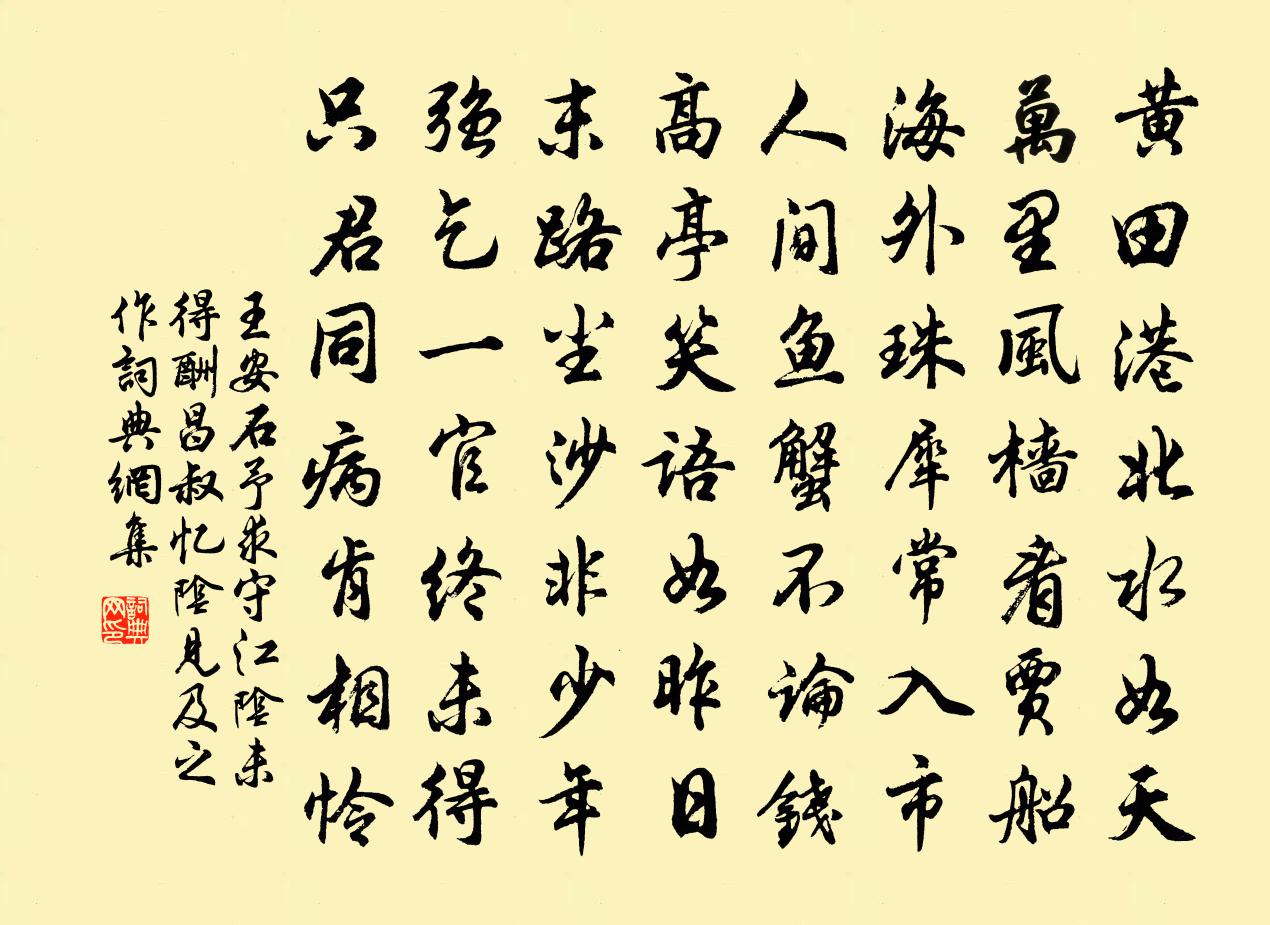 黃田港北水如天
萬里風檣看賈船
海外珠犀常入市
人間魚蟹不論錢
高亭笑語如昨日
末路塵沙非少年
強乞一官終未得
只君同病肯相憐
王安石予求守江陰未
得酬昌叔憶陰見及之
作詞典網集
詞典
网印